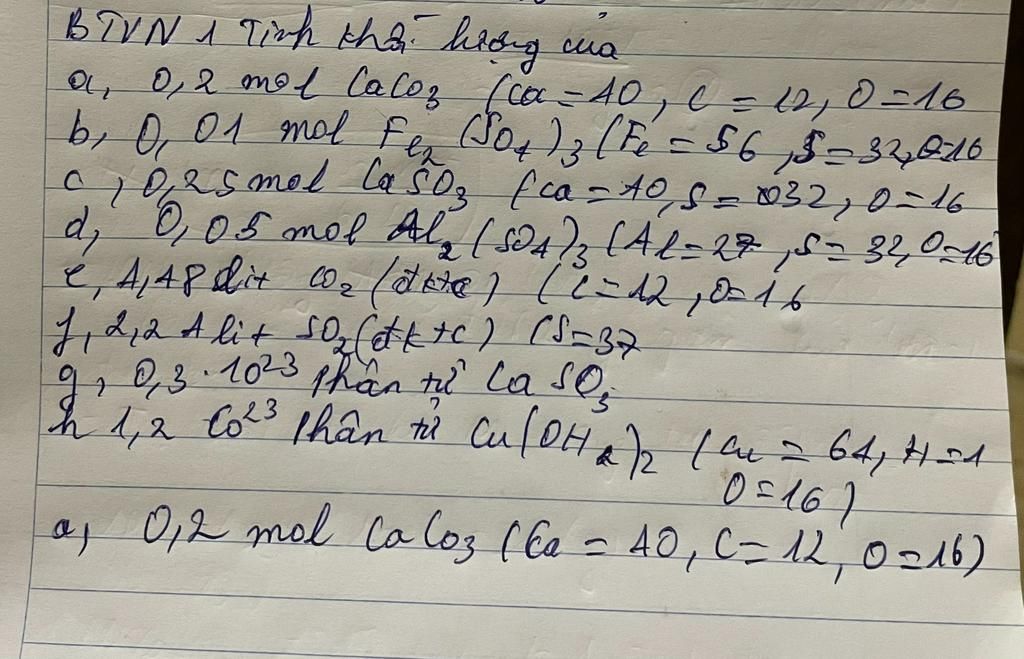 BTVN 1 Tính khối lượng của
a, 0,2 mol CaCO3 (Ca = 40, C = 12, O = 16
b, 0,01 mol Fe2(SO4)3 (Fe = 56, S = 32, O=16
c, 0,25 mol CaSO3 (Ca = 40, S = 032, O = 16
d, 0,05 mol Al2(SO4)3 (Al = 27, S = 32, O = 16
e, 4,48 lit CO2 (đktc) (C = 12, O = 16
f, 2,24 lit SO2 (đktc) (S = 37
g, 0,3 . 10^23 Phân tử CaSO3
h 1,2 Co^23 Phân tử Cu(OH2)2 (Cu = 64, H = 1
O = 16)
a, 0,2 mol CaCO3 (Ca = 40, C = 12, O = 16)